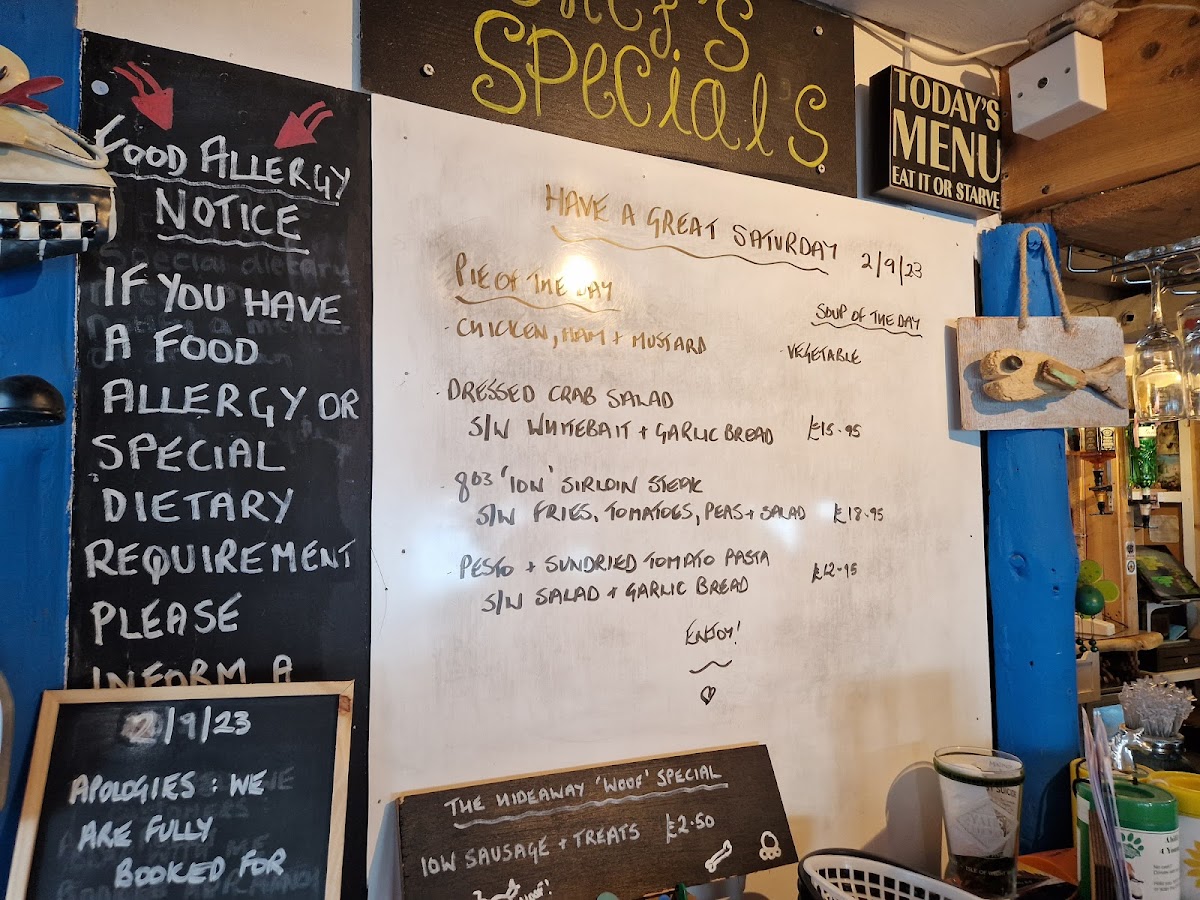 CHEF'S
SPECIALS
TODAY'S
MENU
EAT IT OR STARVE
FOOD ALLERGY
NOTICE
IF YOU HAVE
A FOOD
ALLERGY OR
SPECIAL
DIETARY
REQUIREMENT
PLEASE
INFORM A
2/9/23
APOLOGIES: WE
ARE FULLY
BOOKED FOR
HAVE A GREAT SATURDAY 2/9/23
PIE OF THE DAY
- CHICKEN, HAM + MUSTARD
SOUP OF THE DAY
- VEGETABLE
- DRESSED CRAB SALAD
S/W WHITEBAIT + GARLIC BREAD £15.95
- 8oz 'IOW' SIRLOIN STEAK
S/W FRIES, TOMATOES, PEAS + SALAD £18.95
- PESTO + SUNDRIED TOMATO PASTA
S/W SALAD + GARLIC BREAD £12.95
ENJOY!
THE HIDEAWAY 'WOOF' SPECIAL
IOW SAUSAGE + TREATS £2.50